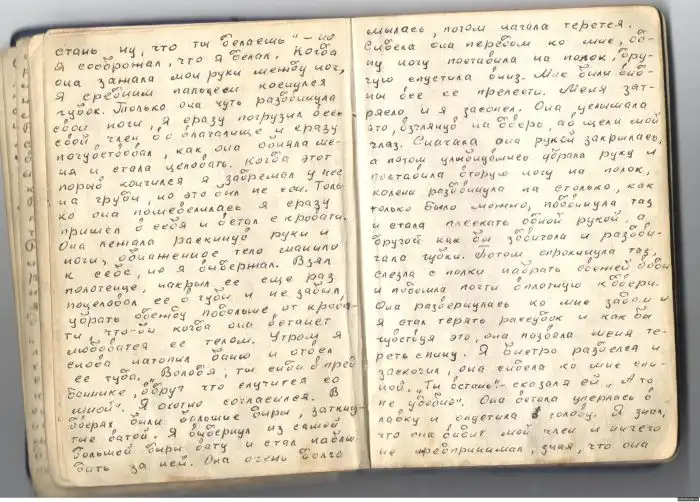 стань ну, что ты делаешь" – но
я соображал, что я делал. Когда
она зажала мои руки между ног,
я средним пальцем коснулся
губок. Только она чуть раздвинула
свои ноги, я сразу погрузил весь
свой член во влагалище и сразу
почувствовал, как она обняла ме-
ня и стала целовать. Когда этот
порыв кончился я задремал у нее
на груди, но это был не сон. Толь-
ко она пошевелилась я сразу
пришел в себя и встал с кровати.
Она лежала раскинув руки и
ноги, обнаженное тело манило
к себе, но я выдержал. Взял
полотенце, накрыл ее еще раз
поцеловал ее в губы и не забыл
убрать одежду подальше от крова-
ти что-бы когда она встанет
любоватся ее телом. Утром я
снова натопил баню и отвел
ее туда. „Володя, ты сиди в пред-
баннике, вдруг что случится со
мной". Я охотно согласился. В
дверях были большие дыры, заткну-
тые ватой. Я выдернул из самой
большой дыры вату и стал наблю-
дать за ней. Она очень долго
мылась, потом начала терется.
Сидела она передом ко мне, од-
ну ногу поставила на полок, дру-
гую спустила вниз. Мне были вид-
ны все ее прелести. Меня зат-
рясло и я застонал. Она услышала
это, взглянув на дверь, а в щели мой
глаз. Сначала она рукой закрылась,
а потом улыбнувшись убрала руку и
поставила вторую ногу на полок,
колени раздвинула на столько, как
только было можно, подвинула таз
и стала плескать одной рукой, а
другой как бы задигала и раздви-
гала губки. Потом опрокинула таз,
слезла с полки набрать свежей воды
и подошла почти вплотную к двери.
Она развернулась ко мне задом и
я стал терять рассудок и как бы
чувствуя это, она позвала меня те-
реть спину. Я быстро разделся и
заскочил, она сидела ко мне спи-
ной. „Ты встань" – сказал я ей, „А то
не удобно". Она встала уперлась в
лавку и опустила голову. Я знал,
что она видит мой член и ничего
не предпринимал, зная, что она